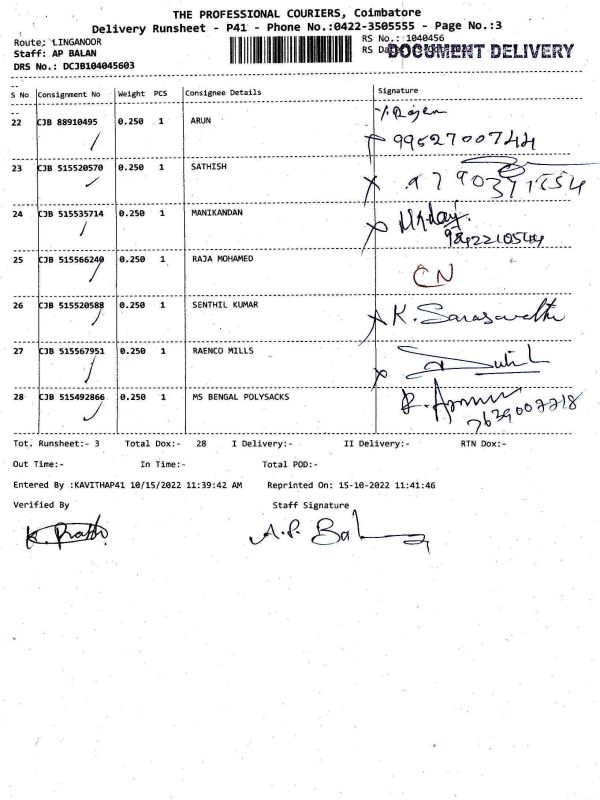 THE PROFESSIONAL COURIERS, Coimbatore
Delivery Runsheet - P41 - Phone No.:0422-3505555 - Page No.:3
Route: LINGANOOR
RS No.: 1040456
Staff: AP BALAN
RS
DOCUMENT DELIVERY
DRS No.: DCJB104045603
S No Consignment No Weight PCS Consignee Details Signature
22 CJB 88910495 0.250 1 ARUN
9952700744
23 CJB 515520570 0.250 1 SATHISH
24 CJB 515535714 0.250 1 MANIKANDAN
9842210544
25 CJB 515566240 0.250 1 RAJA MOHAMED
CN
26 CJB 515520588 0.250 1 SENTHIL KUMAR
K.
27 CJB 515567951 0.250 1 RAENCO MILLS
28 CJB 515492866 0.250 1 MS BENGAL POLYSACKS
Tot. Runsheet:- 3 Total Dox:- 28 I Delivery:- II Delivery:- RTN Dox:-
Out Time:- In Time:- Total POD:-
Entered By :KAVITHAP41 10/15/2022 11:39:42 AM Reprinted On: 15-10-2022 11:41:46
Verified By Staff Signature
A.P. Bal